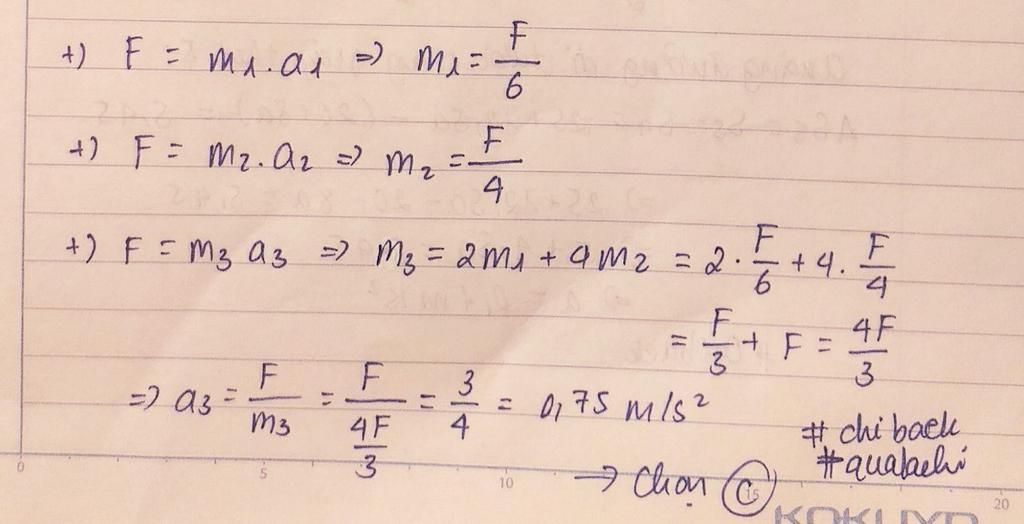 +) F = m₁.a₁ => m₁ = F/6
+) F = m₂.a₂ => m₂ = F/4
+) F = m₃ a₃ => m₃ = 2m₁ + 4m₂ = 2.F/6 + 4.F/4
= F/3 + F = 4F/3
=> a₃ = F/m₃ = F/(4F/3) = 3/4 = 0,75 m/s²
# chi back
# quatachi
→ Chọn C
0 5 10 15 20
KOKUYO